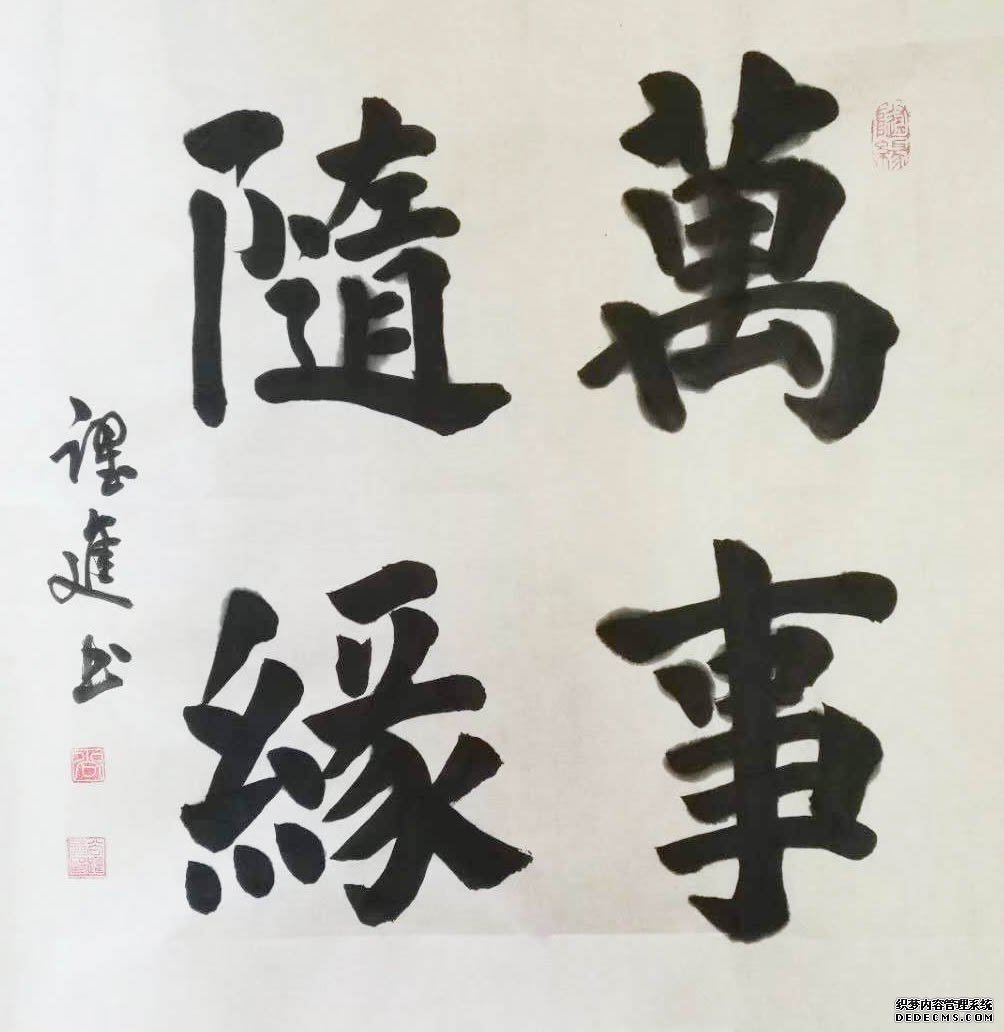 萬事
隨緣
進书
织梦内容管理系统
DEDECMS.COM